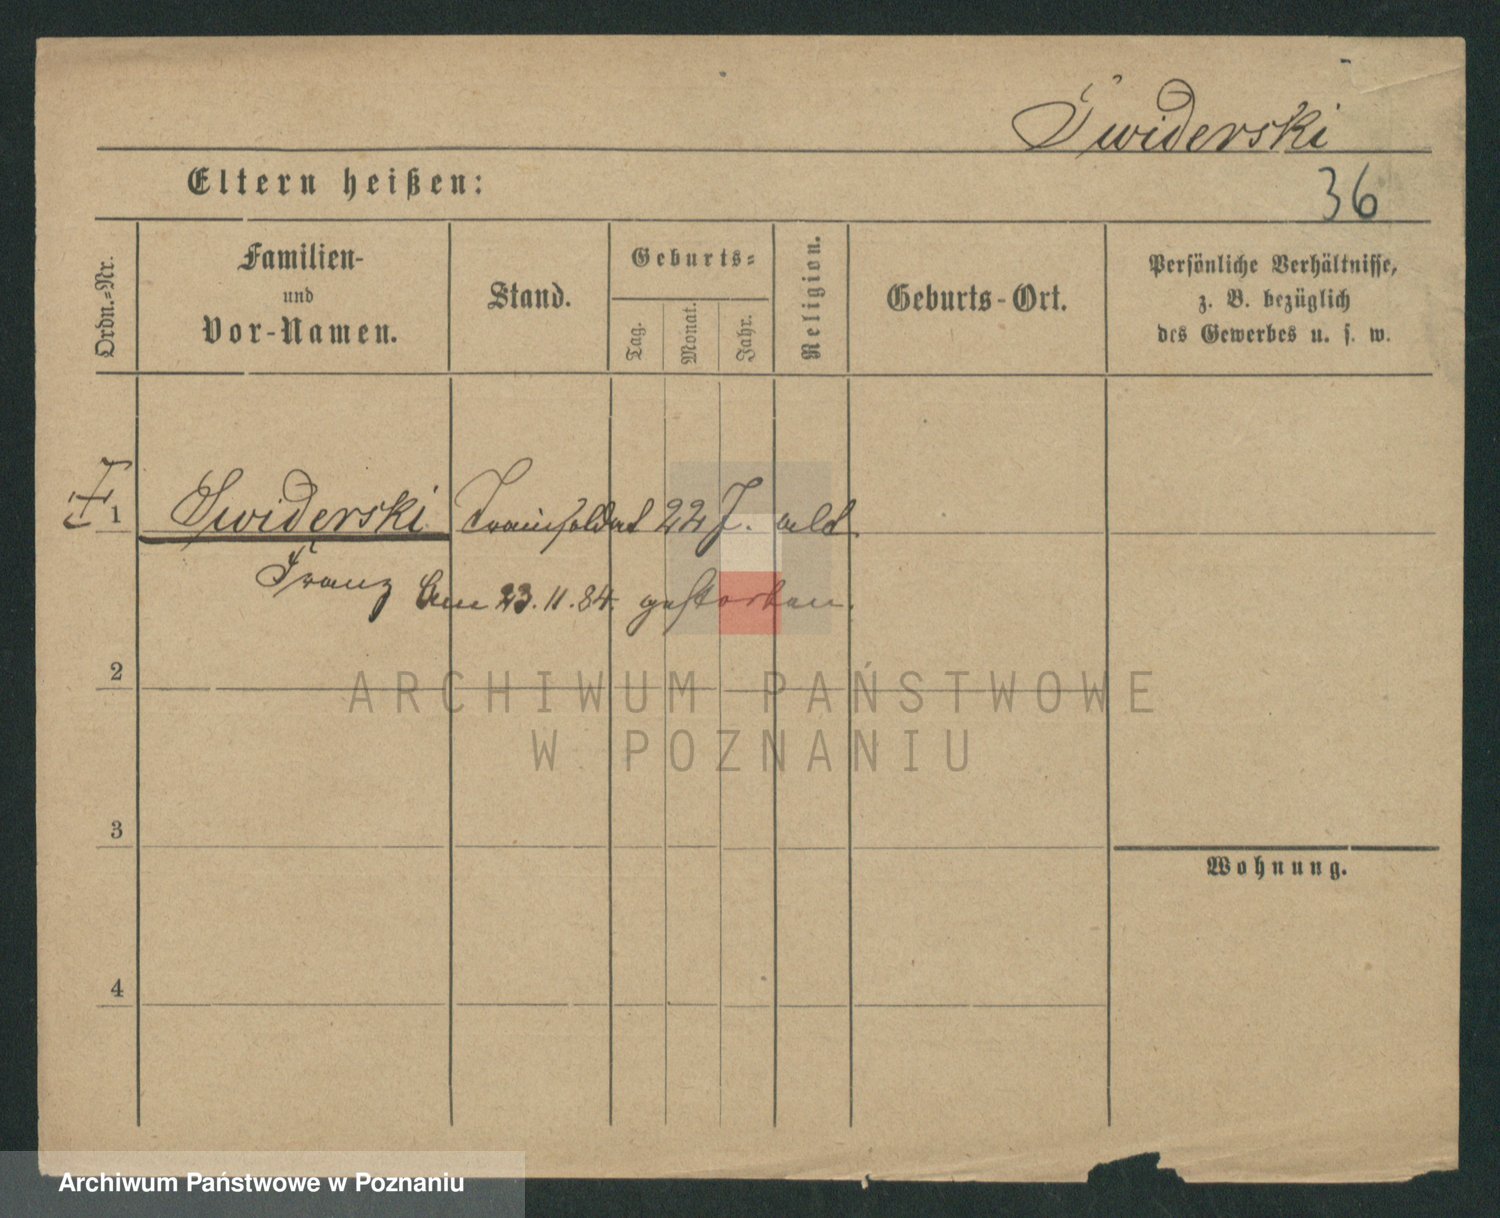 Świderski
Eltern heißen:
36
Ordn.=Nr.
Familien-
und
Vor-Namen.
Stand.
Geburts=
Tag.
Monat.
Jahr.
Religion.
Geburts-Ort.
Persönliche Verhältnisse,
z. B. bezüglich
des Gewerbes u. s. w.
1 Swiderski Trainsoldat 22 J. alt.
Franz Am 23.11.84. gestorben.
2
ARCHIWUM PAŃSTWOWE
W POZNANIU
3
Wohnung.
4
Archiwum Państwowe w Poznaniu